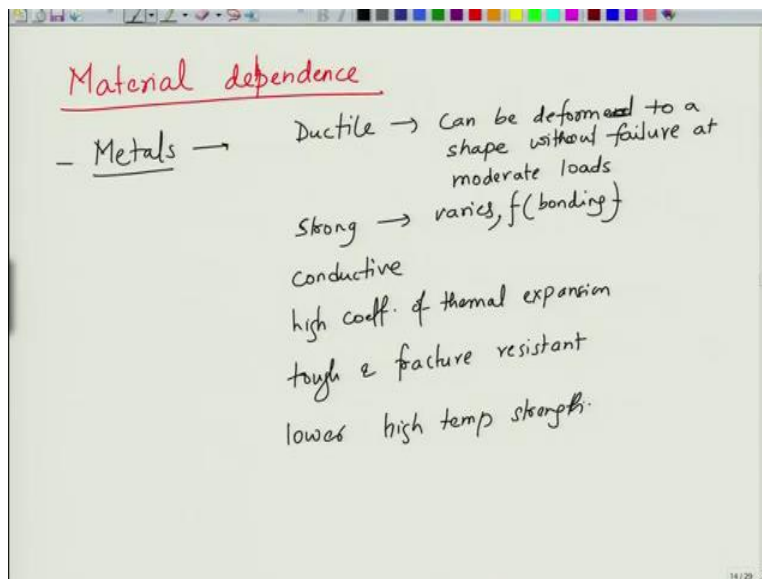 Material dependence
- Metals → Ductile → Can be deformed to a
shape without failure at
moderate loads
Strong → varies, f(bonding)
conductive
high coeff. of thermal expansion
tough & fracture resistant
lower high temp strength.
14/29